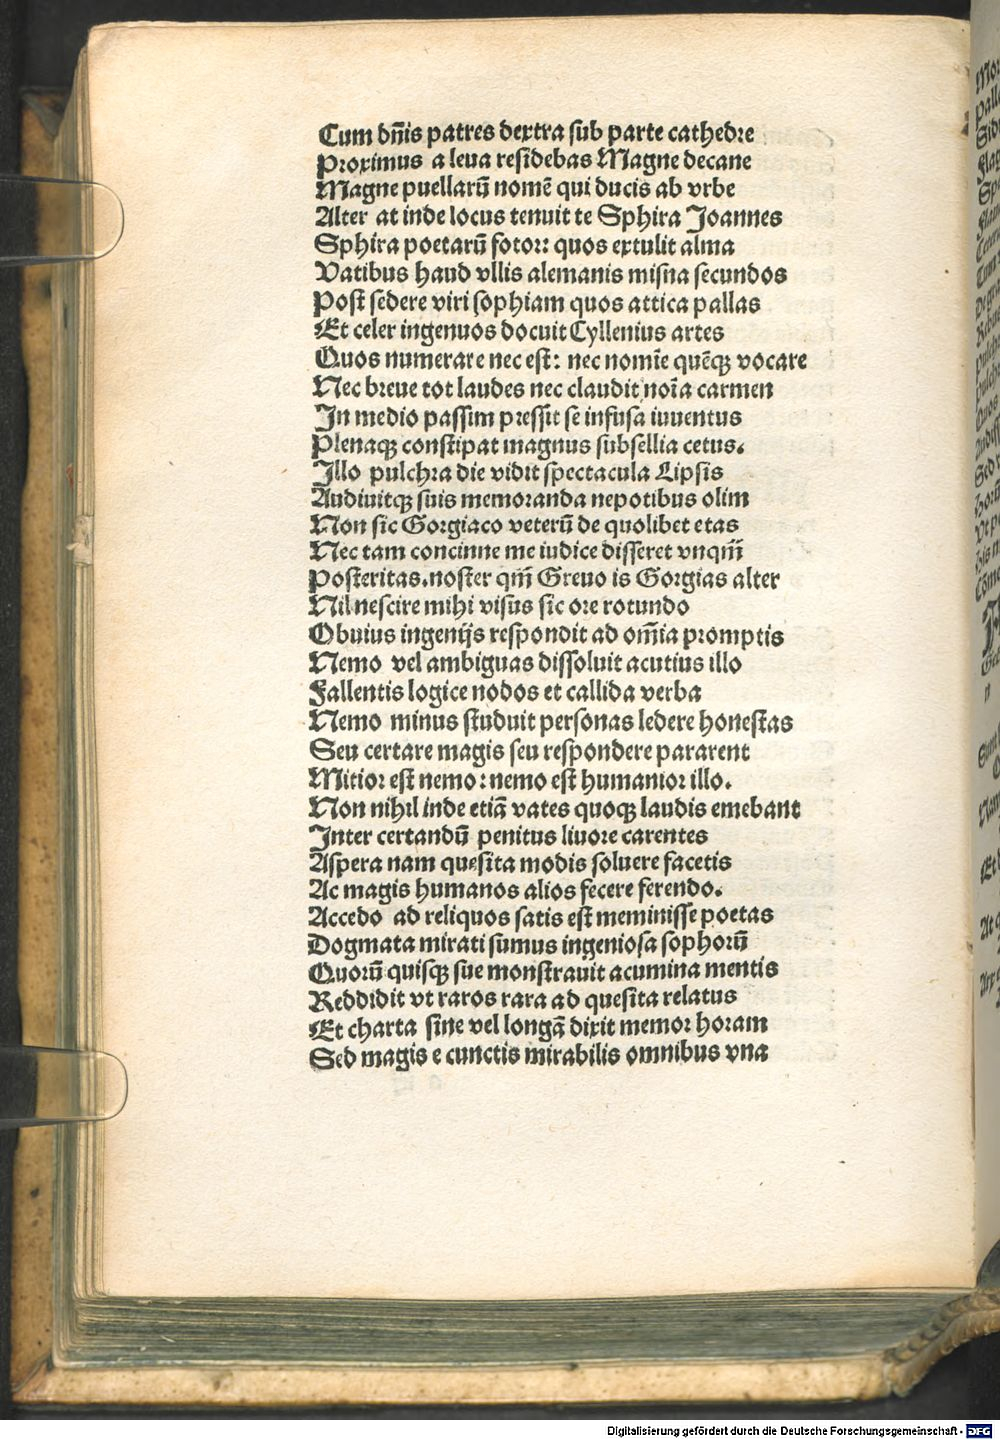 Cum dn̄is patres dextra sub parte cathedre
Proximus a leua residebas Magne decane
Magne puellarū nomē qui ducis ab vrbe
Alter at inde locus tenuit te Sphira Joannes
Sphira poetarū fotor: quos extulit alma
Vatibus haud vllis alemanis misna secundos
Post sedere viri sophiam quos attica pallas
Et celer ingenuos docuit Cyllenius artes
Quos numerare nec est: nec nomīe quēqꝫ vocare
Nec breue tot laudes nec claudit noīa carmen
In medio passim pressit se infusa iuuentus
Plenaqꝫ constipat magnus subsellia cetus.
Illo pulchra die vidit spectacula Lipsis
Audiuitqꝫ suis memoranda nepotibus olim
Non sic Gorgiaco veterū de quolibet etas
Nec tam concinne me iudice disseret vnqm̄
Posteritas. noster qm̄ Greuo is Gorgias alter
Nil nescire mihi visus sic ore rotundo
Obuius ingenijs respondit ad om̄ia promptis
Nemo vel ambiguas dissoluit acutius illo
Fallentis logice nodos et callida verba
Nemo minus studuit personas ledere honestas
Seu certare magis seu respondere pararent
Mitior est nemo: nemo est humanior illo.
Non nihil inde etiā vates quoqꝫ laudis emebant
Inter certandū penitus liuore carentes
Aspera nam quesita modis soluere facetis
Ac magis humanos alios fecere ferendo.
Accedo ad reliquos satis est meminisse poetas
Dogmata mirati sumus ingeniosa sophorū
Quorū quisqꝫ sue monstrauit acumina mentis
Reddidit vt raros rara ad quesita relatus
Et charta sine vel longā dixit memor horam
Sed magis e cunctis mirabilis omnibus vna
Digitalisierung gefördert durch die Deutsche Forschungsgemeinschaft - DFG